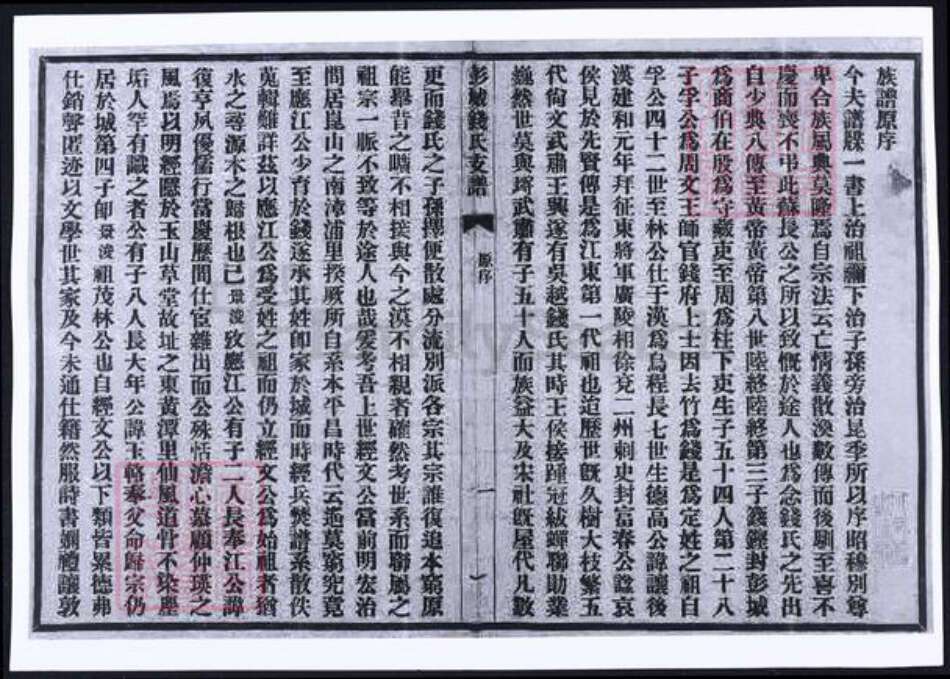 族譜原序
今夫譜牒一書上治祖禰下治子孫旁治昆季所以序昭穆別尊
卑合族屬典莫隆焉自宗法云亡情義散渙數傳而後馴至喜不
慶而喪不弔此蘇長公之所以致慨於途人也爲念錢氏之先出
自少典八傳至黃帝黃帝第八世陸終陸終第三子籛鏗封彭城
爲商伯在殷爲守藏吏至周爲柱下吏生子五十四人第二十八
子孚公爲周文王師官錢府上士因去竹爲錢是爲定姓之祖自
孚公四十二世至林公仕于漢爲烏程長七世生德高公諱讓後
漢建和元年拜征東將軍廣陵相徐兗二州刺史封富春公諡哀
侯見於先賢傳是爲江東第一代祖也迨歷世既久樹大枝繁五
代尙文武肅王興遂有吳越錢氏其時王侯接踵冠紱蟬聯勛業
巍然世莫與埒武肅有子五十人而族益大及宋社既屋代凡數
彭城錢氏支譜
原序
一
更而錢氏之子孫擇便散處分流別派各宗其宗誰復追本窮原
能舉昔之曠不相接與今之漠不相親者確然考世系而聯屬之
祖宗一脈不致等於途人也哉爰考吾上世經文公當前明宏治
間居崑山之南漳浦里揆厥所自系本平昌時代云遙莫窮究竟
至應江公少育於錢遂承其姓卽家於城而時經兵燹譜系散佚
蒐輯難詳茲以應江公爲受姓之祖而仍立經文公爲始祖者猶
水之尋源木之歸根也已景浚攷應江公有子二人長奉江公諱
復亨夙優儒行當慶歷間仕宦雜出而公殊恬澹心慕顧仲瑛之
風焉以明經隱於玉山草堂故址之東黃潭里仙風道骨不染塵
垢人罕有識之者公有子八人長大年公諱玉輅奉父命歸宗仍
居於城第四子卽景浚祖茂林公也自經文公以下類皆累德弗
仕銷聲匿迹以文學世其家及今未通仕籍然服詩書嫻禮讓敦